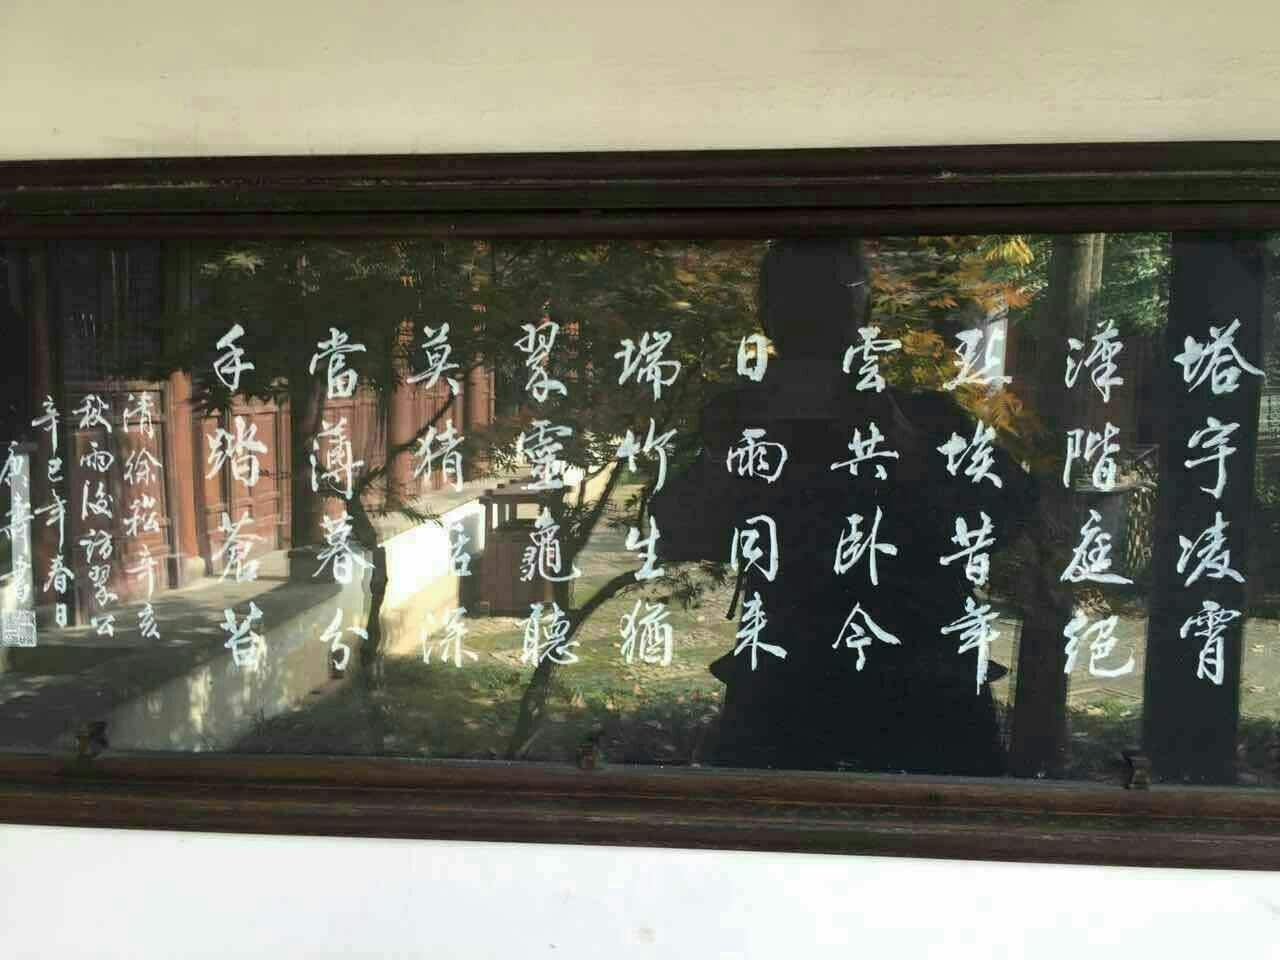 塔宇凌霄
漢階庭絕
點埃昔年
雲共卧今
日雨同来
瑞竹生猶
翠靈龜聽
莫猜話深
當薄暮分
手踏蒼苔
清徐崧辛亥
秋雨後訪翠公
辛巳年春日
廣壽書